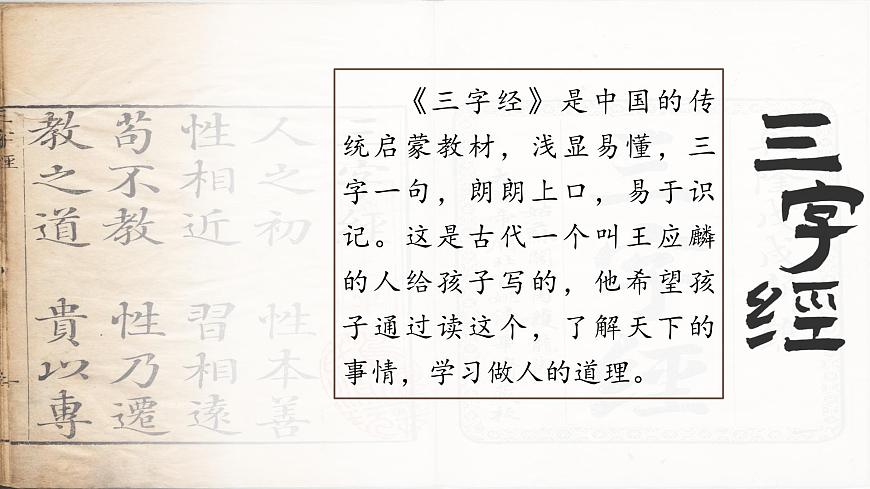 《三字经》是中国的传
统启蒙教材，浅显易懂，三
字一句，朗朗上口，易于识
记。这是古代一个叫王应麟
的人给孩子写的，他希望孩
子通过读这个，了解天下的
事情，学习做人的道理。
三字經
人之初 性本善
性相近 習相遠
苟不教 性乃遷
教之道 貴以專